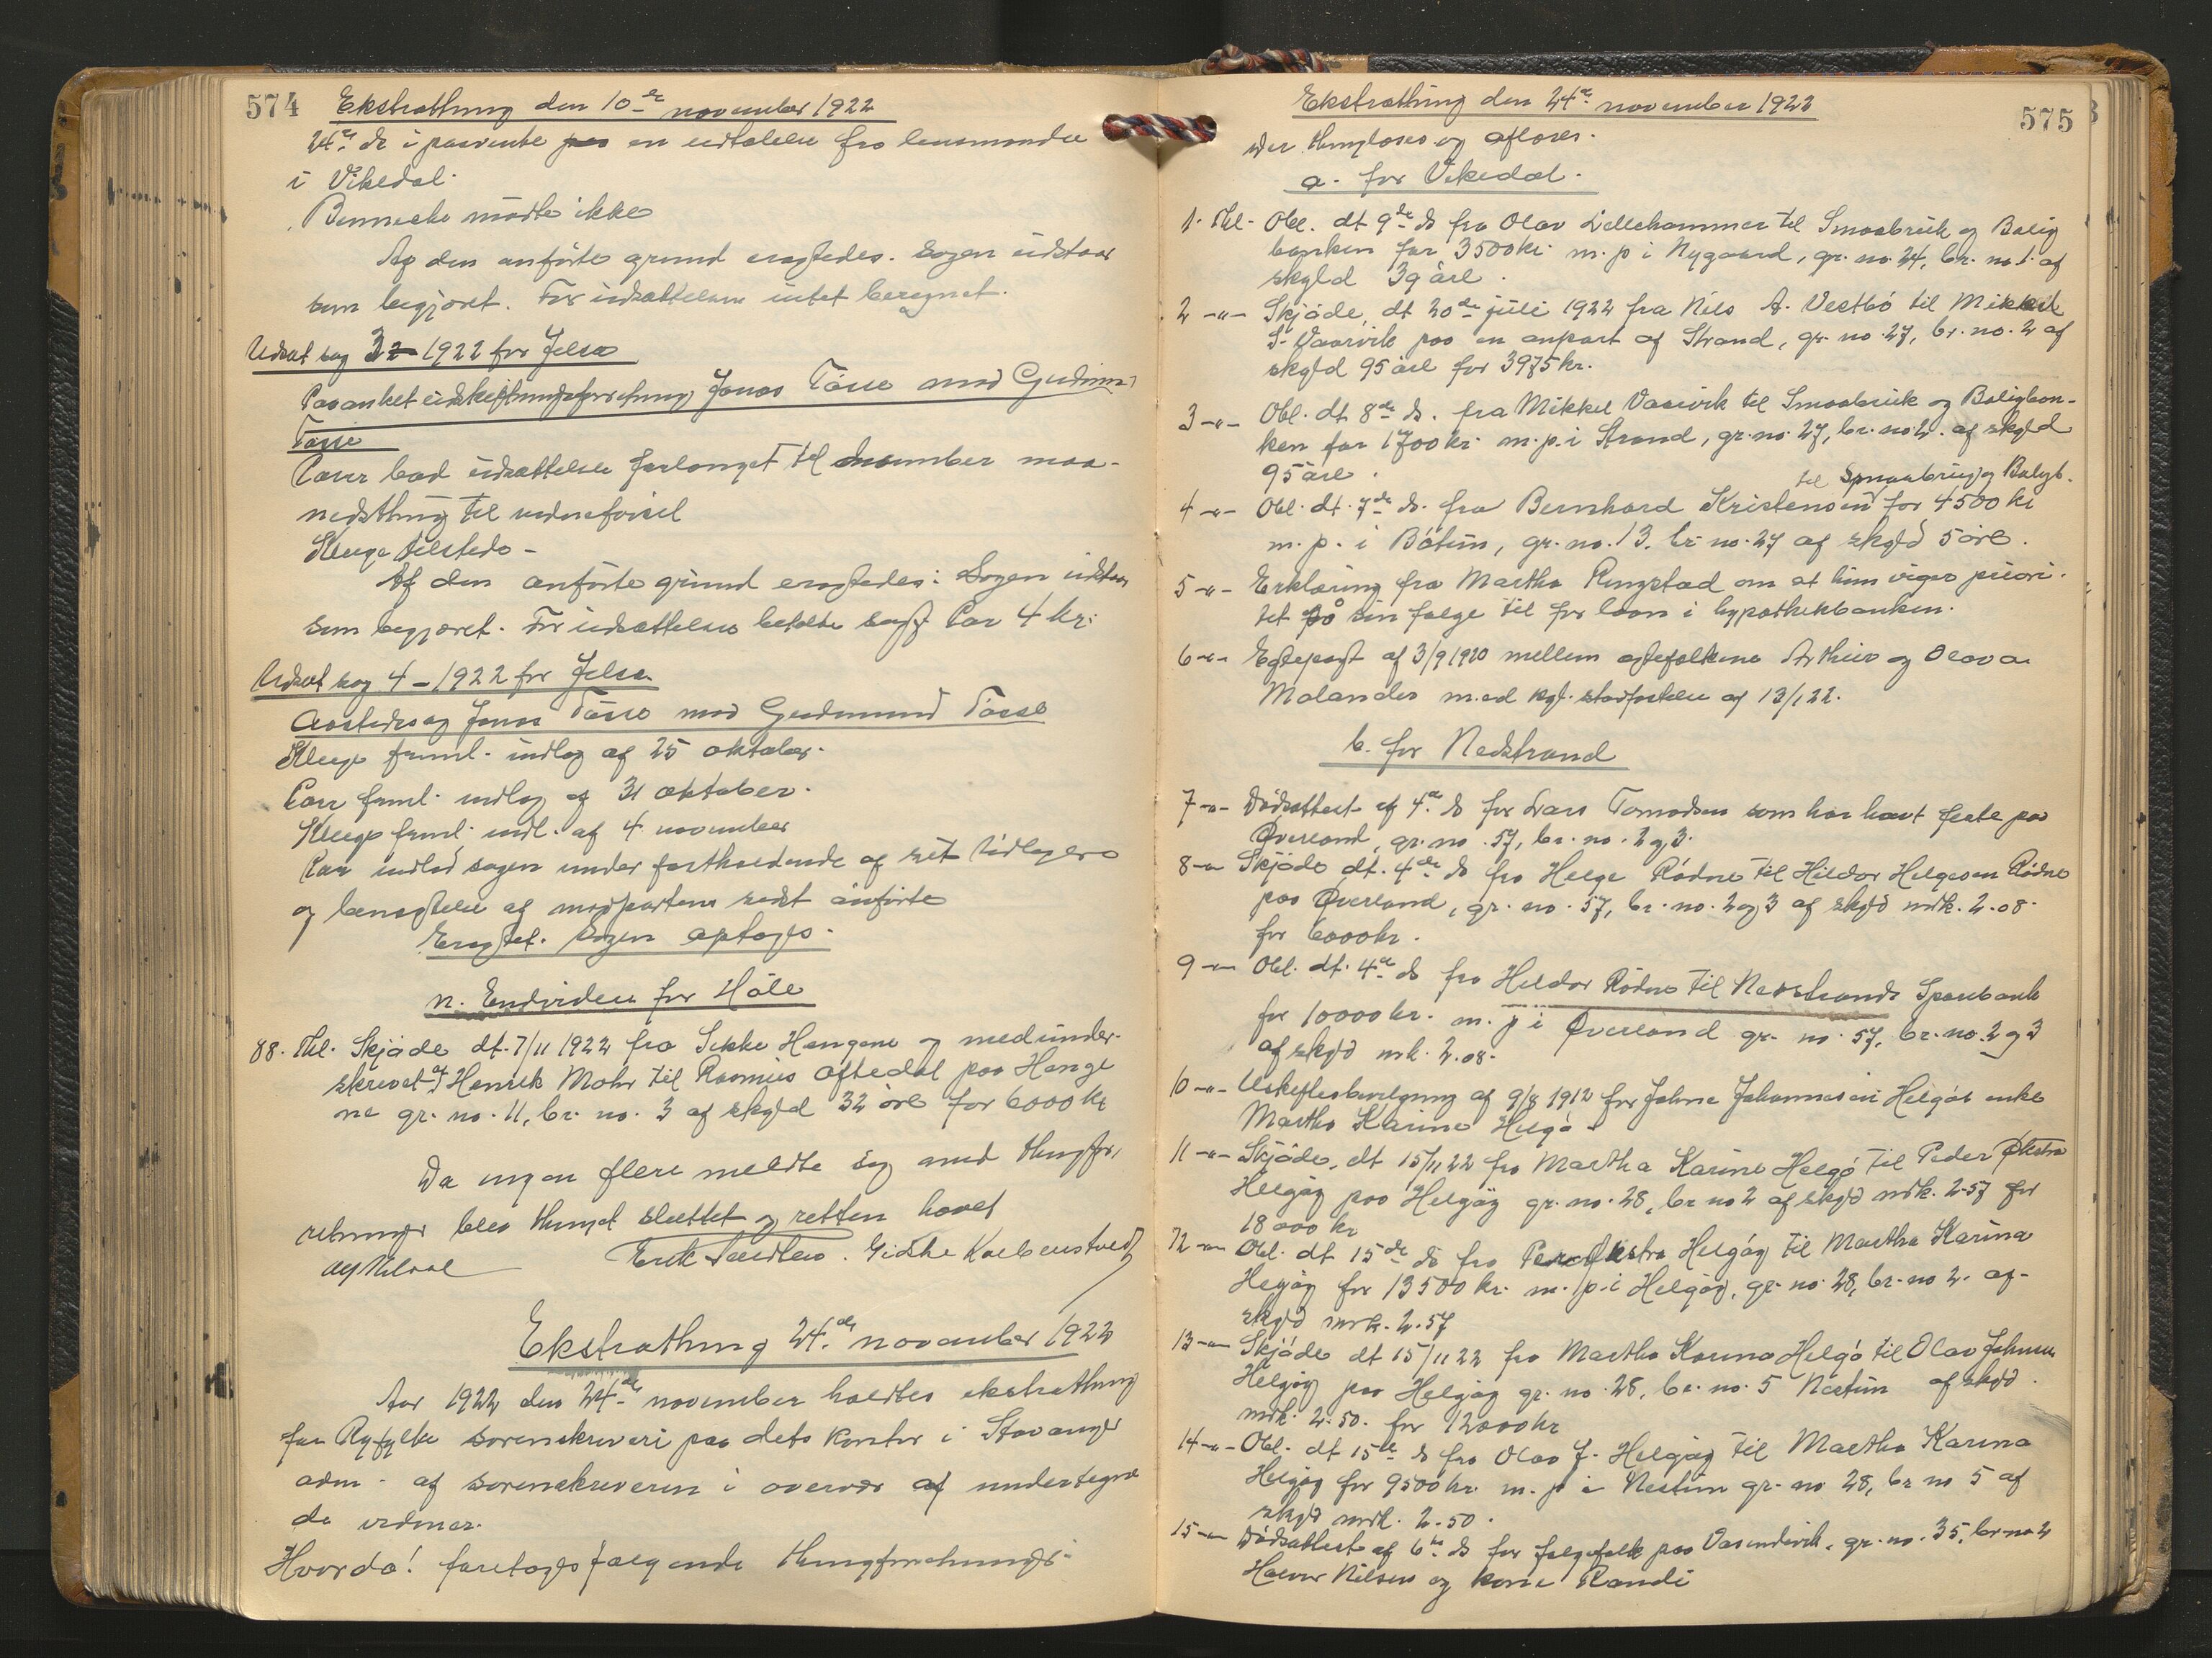 574
Ekstrathing den 10de november 1922
24de ds i paavente en udtalelse fra lensmanden
i Vikedal.
Benneche mødte ikke
Af den anførte grund eragtedes. Sagen udstaar
som begjæret. For udsættelsen intet beregnet.
Udsat sag 3 - 1922 for Jelsa
Paaanket udskiftningsforretning Jonas Tøsse mod Gudmund
Tøsse
bad udsættelse forlanget til december maa-
nedsthing til vidneførsel
Kluge tilstede -
Af den anførte grund eragtedes: Sagen udstaar
som begjæret. For udsættelsen betalte sagf. 4 kr.
Udsat sag 4 - 1922 for Jelsa.
Aastedssag Jonas Tøsse mod Gudmund Tøsse
Kluge freml. indlæg af 25 oktober.
freml. indlæg af 31 oktober.
Kluge freml. indl. af 4 november
indlod sagen under fastholdende af sit tidligere
og benægtelse af modpartens sidst anførte
Eragtet. Sagen optages.
n. Endvidere for Høle
88. Thl. Skjøde dt. 7/11 1922 fra Sikke Hengene og medunder-
skrevet af Henrik Mohr til Rasmus Oftedal paa Henge
ne gr. no. 11, br. no. 3 af skyld 32 øre for 6000 kr
Da ingen flere meldte sig med thingfor,
retninger blev thinget sluttet og retten hævet
Ekstrathing 24de november 1922
Aar 1922 den 24de november holdtes ekstrathing
for Ryfylke sorenskriveri paa dets kontor i Stavanger
adm. af sorenskriveren i overvær af undertegne
de vidner.
Hvorda! foretoges følgende thingforretninger.
575
Ekstrathing den 24de november 1922
Der thinglæses og aflæses.
a. for Vikedal.
1. Thl. Obl. dt 9de ds fra Olav Lillehammer til Smaabruk og Bolig
banken for 3500 kr. m. p i Nygaard, gr. no. 24, br. no 1. af
skyld 39 øre.
2 -"- Skjøde, dt 20de juli 1922 fra Nils A. Vestbø til Mikkel
S. Vaarvik paa en anpart af Strand, gr. no. 27, br. no. 2 af
skyld 95 øre for 3975 kr.
3 -"- Obl. dt 8de ds. fra Mikkel Vaarvik til Smaabruk og Boligban-
ken for 1700 kr. m. p. i Strand, gr. no. 27, br. no 2. af skyld
95 øre.
til Smaabrug og Boligb.
4 -"- Obl. dt. 7de ds. fra Bernhard Kristensen for 4500 kr
m. p. i Bøtun, gr. no. 13, br. no. 27 af skyld 5 øre.
5 -"- Erklæring fra Martha Ringstad om at hun viger priori-
tet på sin følge til for laan i hypothekbanken.
6 -"- Egtepagt af 3/9 1920 mellem egtefolkene Arthur og Olova
Molander med kgl. stadfæstelse af 13/1 22.
b. for Nedstrand
7 -"- Dødsattest af 4de ds for Lars Tormodsen som har havt feste paa
Øverland, gr. no. 57, br. no. 2 og 3.
8 -"- Skjøde dt. 4de ds fra Helge Rødne til Hildor Helgesen Rødne
paa Øverland, gr. no. 57, br. no. 2 og 3 af skyld mrk. 2.08.
for 6000 kr.
9 -"- Obl. dt. 4de ds fra Hildor Rødne til Nedstrands Sparebank
for 10000 kr. m. p i Øverland gr. no. 57, br. no. 2 og 3
af skyld mk. 2.08.
10 -"- Uskiftesbevilgning af 9/8 1912 for Johne Johannesen Helgøs enke
Martha Karine Helgø.
11 -"- Skjøde, dt 15/11 22 fra Martha Karine Helgø til Peder Økstra
Helgøy paa Helgøy gr. no. 28, br no 2 af skyld mrk. 2.57 for
18000 kr
12 -"- Obl. dt 15de ds fra Peder Økstra Helgøy til Martha Karina
Helgøy for 13500 kr. m. p. i Helgøy, gr. no. 28, br. no 2. af
skyld mrk. 2.57
13 -"- Skjøde dt 15/11 22 fra Martha Karina Helgø til Olav Johnsen
Helgøy paa Helgøy gr. no. 28, br. no. 5 Nestun af skyld
mrk. 2.50. for 12000 kr
14 -"- Obl. dt 15de ds fra Olav J. Helgøy til Martha Karina
Helgøy for 9500 kr. m. p i Nestun gr. no 28, br no 5 af
skyld mrk. 2.50.
15 -"- Dødsattest af 6te ds for følgefolk paa Vasendvik, gr. no. 35, br no 2
Halvor Nilsen og kone Randi